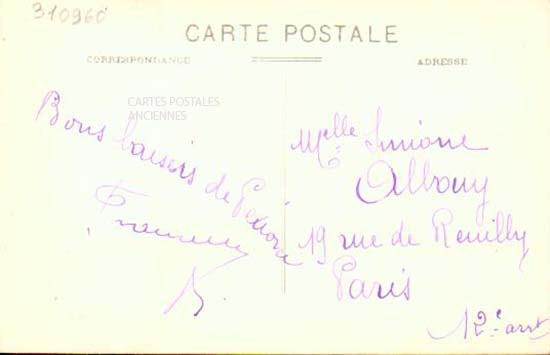 310960
CARTE POSTALE
CORRESPONDANCE
ADRESSE
CARTES POSTALES
ANCIENNES
Bons baisers de
Melle Simone
Albouy
19 rue de Reuilly
Paris
12e arrt